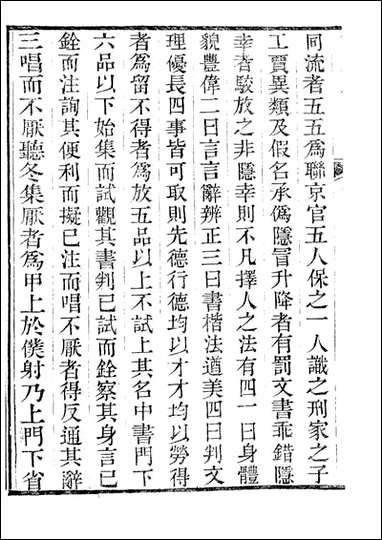 同流者五五爲聯京官五人保之一人識之刑家之子
工賈異類及假名承僞隱冒升降者有罰文書乖錯隱
幸者駮放之非隱幸則不凡擇人之法有四一曰身體
貌豐偉二曰言言辭辨正三曰書楷法遒美四曰判文
理優長四事皆可取則先德行德均以才才均以勞得
者爲留不得者爲放五品以上不試上其名中書門下
六品以下始集而試觀其書判已試而銓察其身言已
銓而注詢其便利而擬已注而唱不厭者得反通其辭
三唱而不厭聽冬集厭者爲甲上於僕射乃上門下省